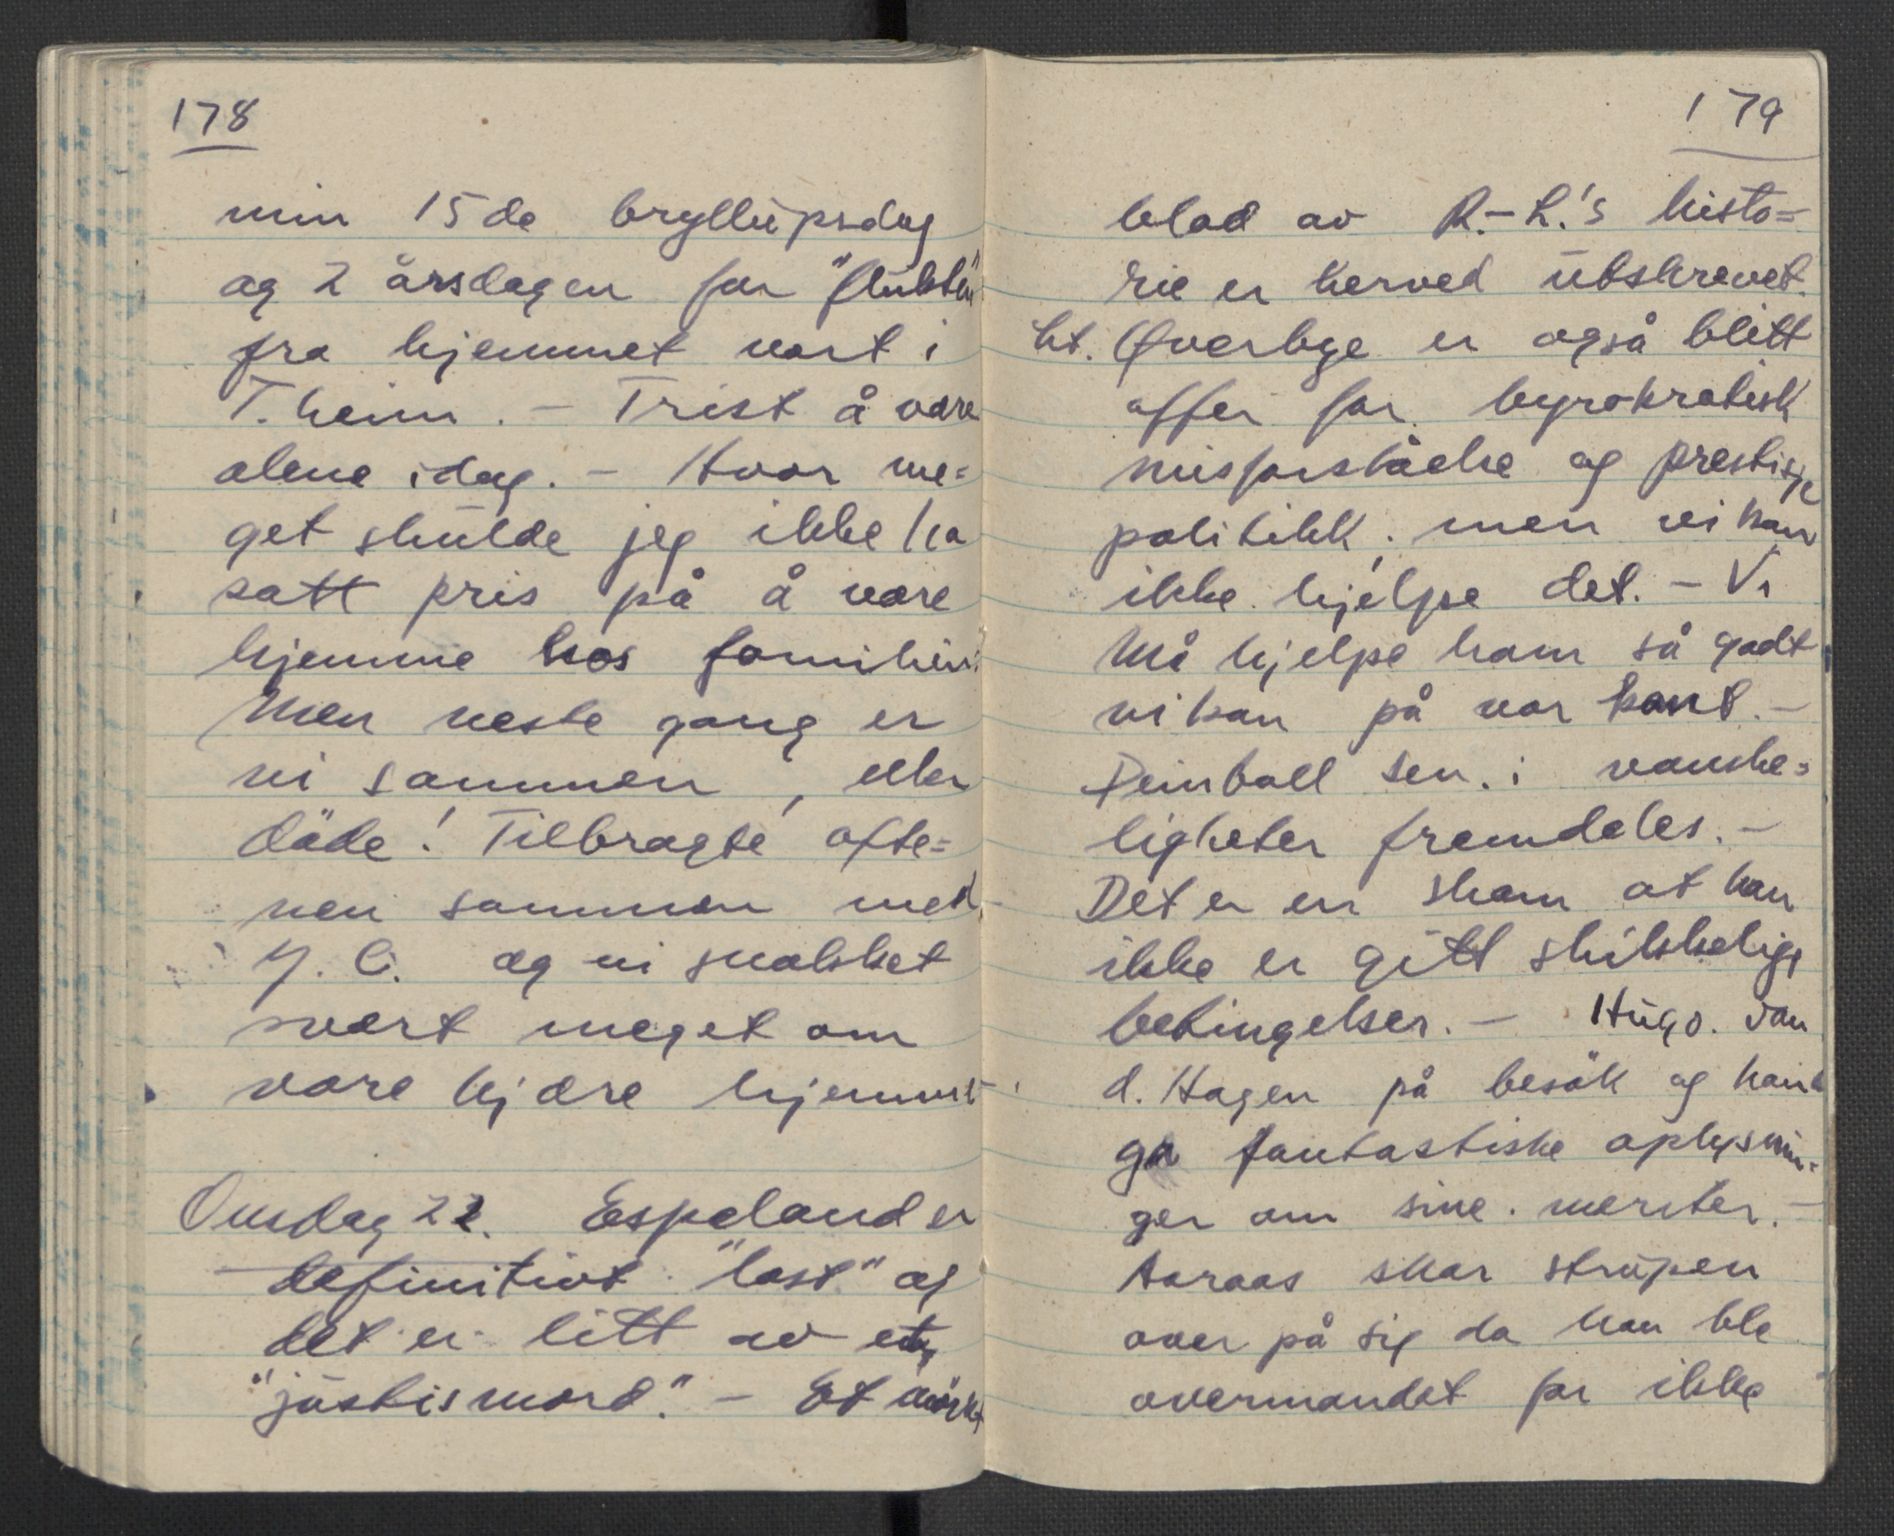 178
min 15de bryllupsdag
og 2 årsdagen for "flukten"
fra hjemmet vort i
T.heim. - Trist å være
alene idag. - Hvor me=
get skulde jeg ikke ha
satt pris på å være
hjemme hos familien!
Men neste gang er
vi sammen, eller
döde! Tilbragte afte=
nen sammen med
og vi snakket
svært meget om
våre kjære hjemme
Onsdag 22. Espeland er
definitivt "lost" og
det er litt av et
"justismord". - Et mörkt
179
blad av R.-L.'s histo=
rie er herved utskrevet.
Lt. Överbye er også blitt
offer for byrokratisk
misforståelse og prestisje
politikk, men vi kan
ikke hjelpe det. - Vi
må hjelpe ham så godt
vi kan på vor kant. -
Deinboll sen. i vanske=
ligheter fremdeles. -
Det er en skam at han
ikke er gitt skikkelige
betingelser. - Hugo. van
d. Hagen på besök og han
ga fantastiske oplysnin=
ger om sine meriter. -
Aaraas skar strupen
over på sig da han ble
overmandet for ikke